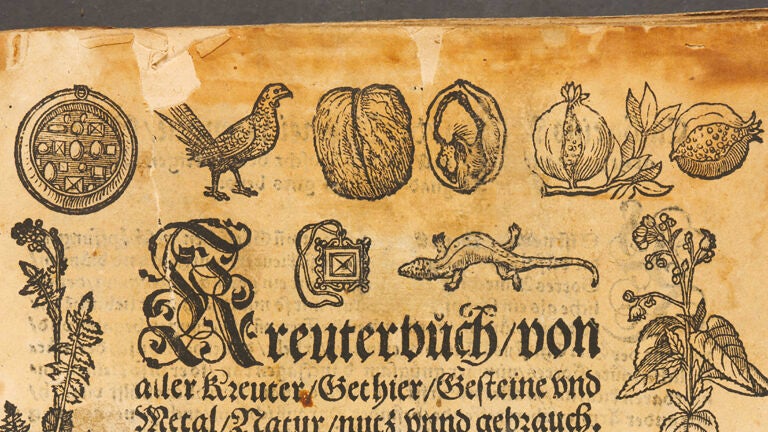 Kreuterbůch/von
aller Kreuter/Gethier/Gesteine vnd
Metal/Natur/nutz vnnd gebrauch.